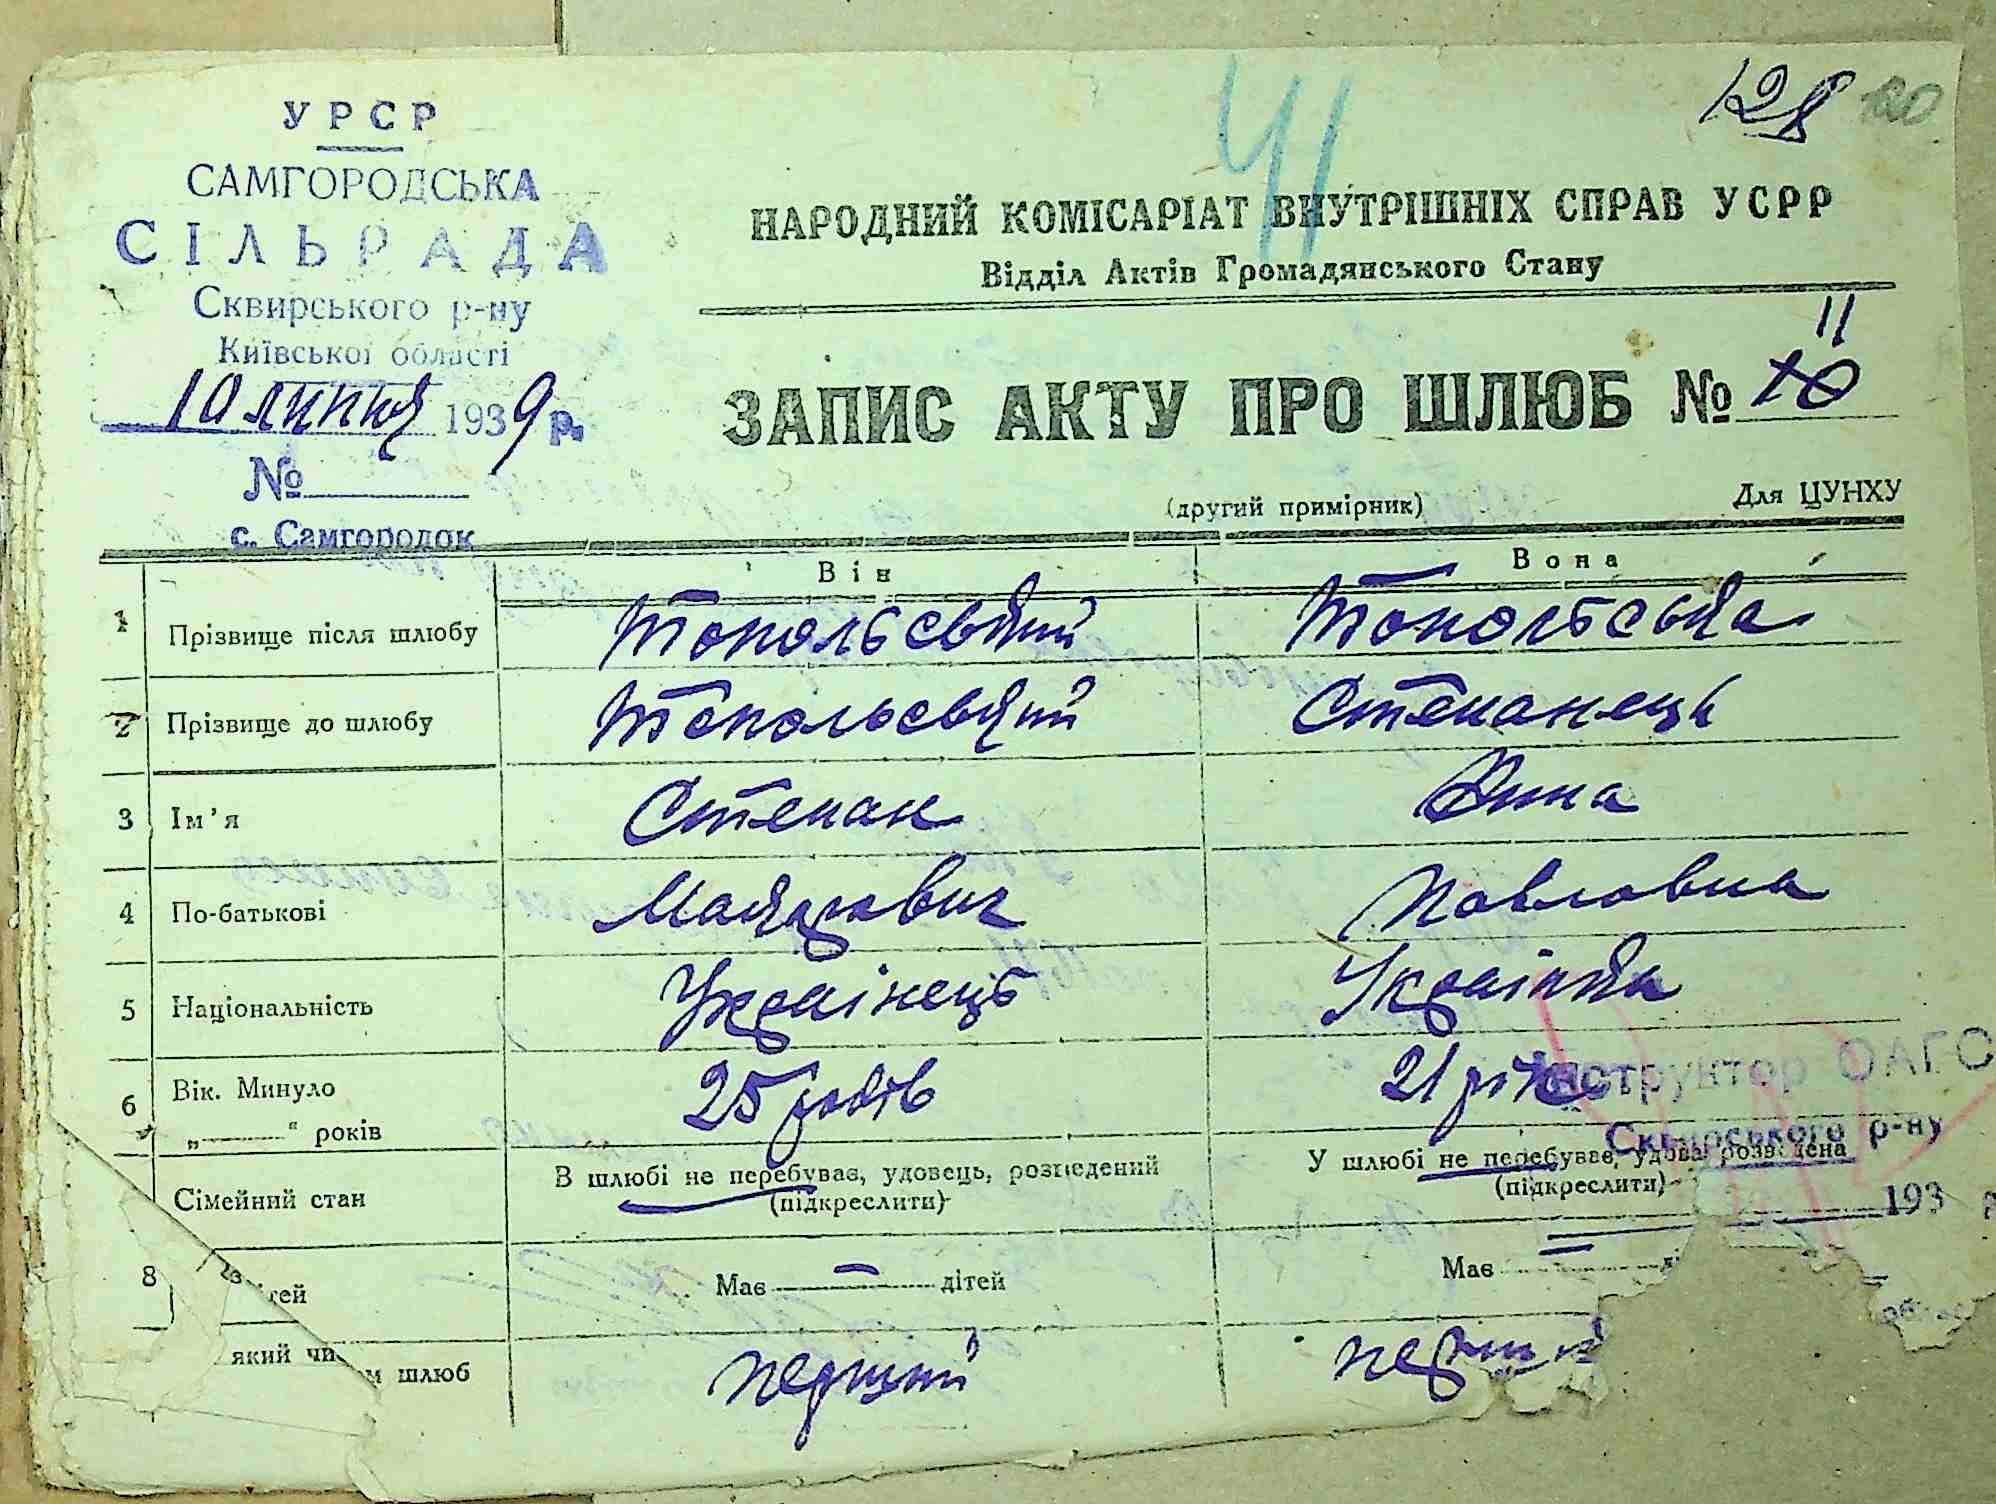 УРСР
САМГОРОДСЬКА
СІЛЬРАДА
Сквирського р-ну
Київської області
10 липня 1939 р.
№
с. Самгородок
41
128 120
НАРОДНИЙ КОМІСАРІАТ ВНУТРІШНІХ СПРАВ УСРР
Відділ Актів Громадянського Стану
11
ЗАПИС АКТУ ПРО ШЛЮБ № 10
(другий примірник) Для ЦУНХУ
Він Вона
1 Прізвище після шлюбу Топольський Топольська
2 Прізвище до шлюбу Топольський Степанець
3 Ім'я Степан Анна
4 По-батькові Павловна
5 Національність Українець Українка
6 Вік. Минуло „ “ років 25 років 21 рік
Інструктор ОАГС
Сквирського р-ну
193
Сімейний стан В шлюбі не перебуває, удовець, розведений (підкреслити) У шлюбі не перебуває, удова розведена (підкреслити)
8 тей Має — дітей Має — ді
який чи м шлюб перший перший